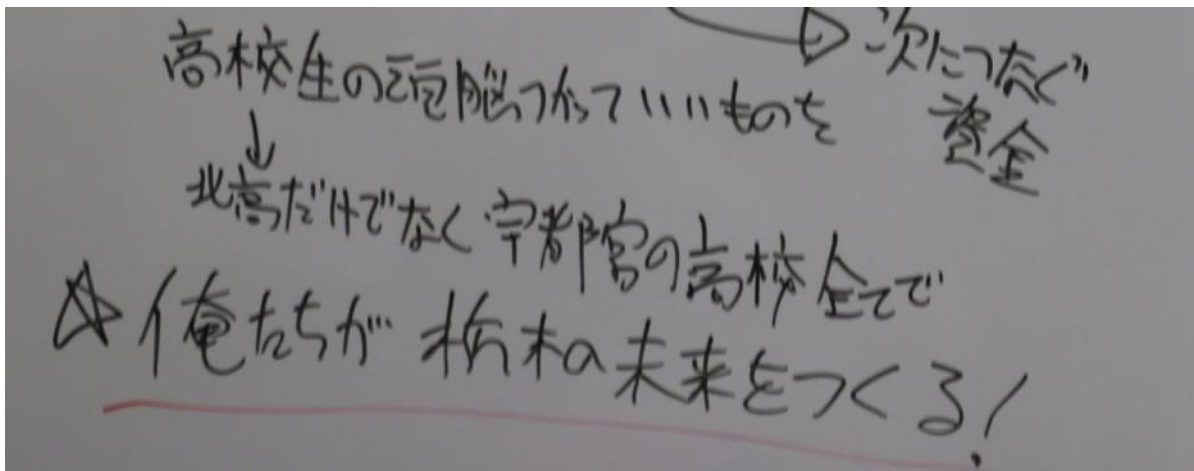 →次につなぐ
資金
高校生の頭脳つかっていいものを
↓
北高だけでなく宇都宮の高校全てで
☆俺たちが栃木の未来をつくる!